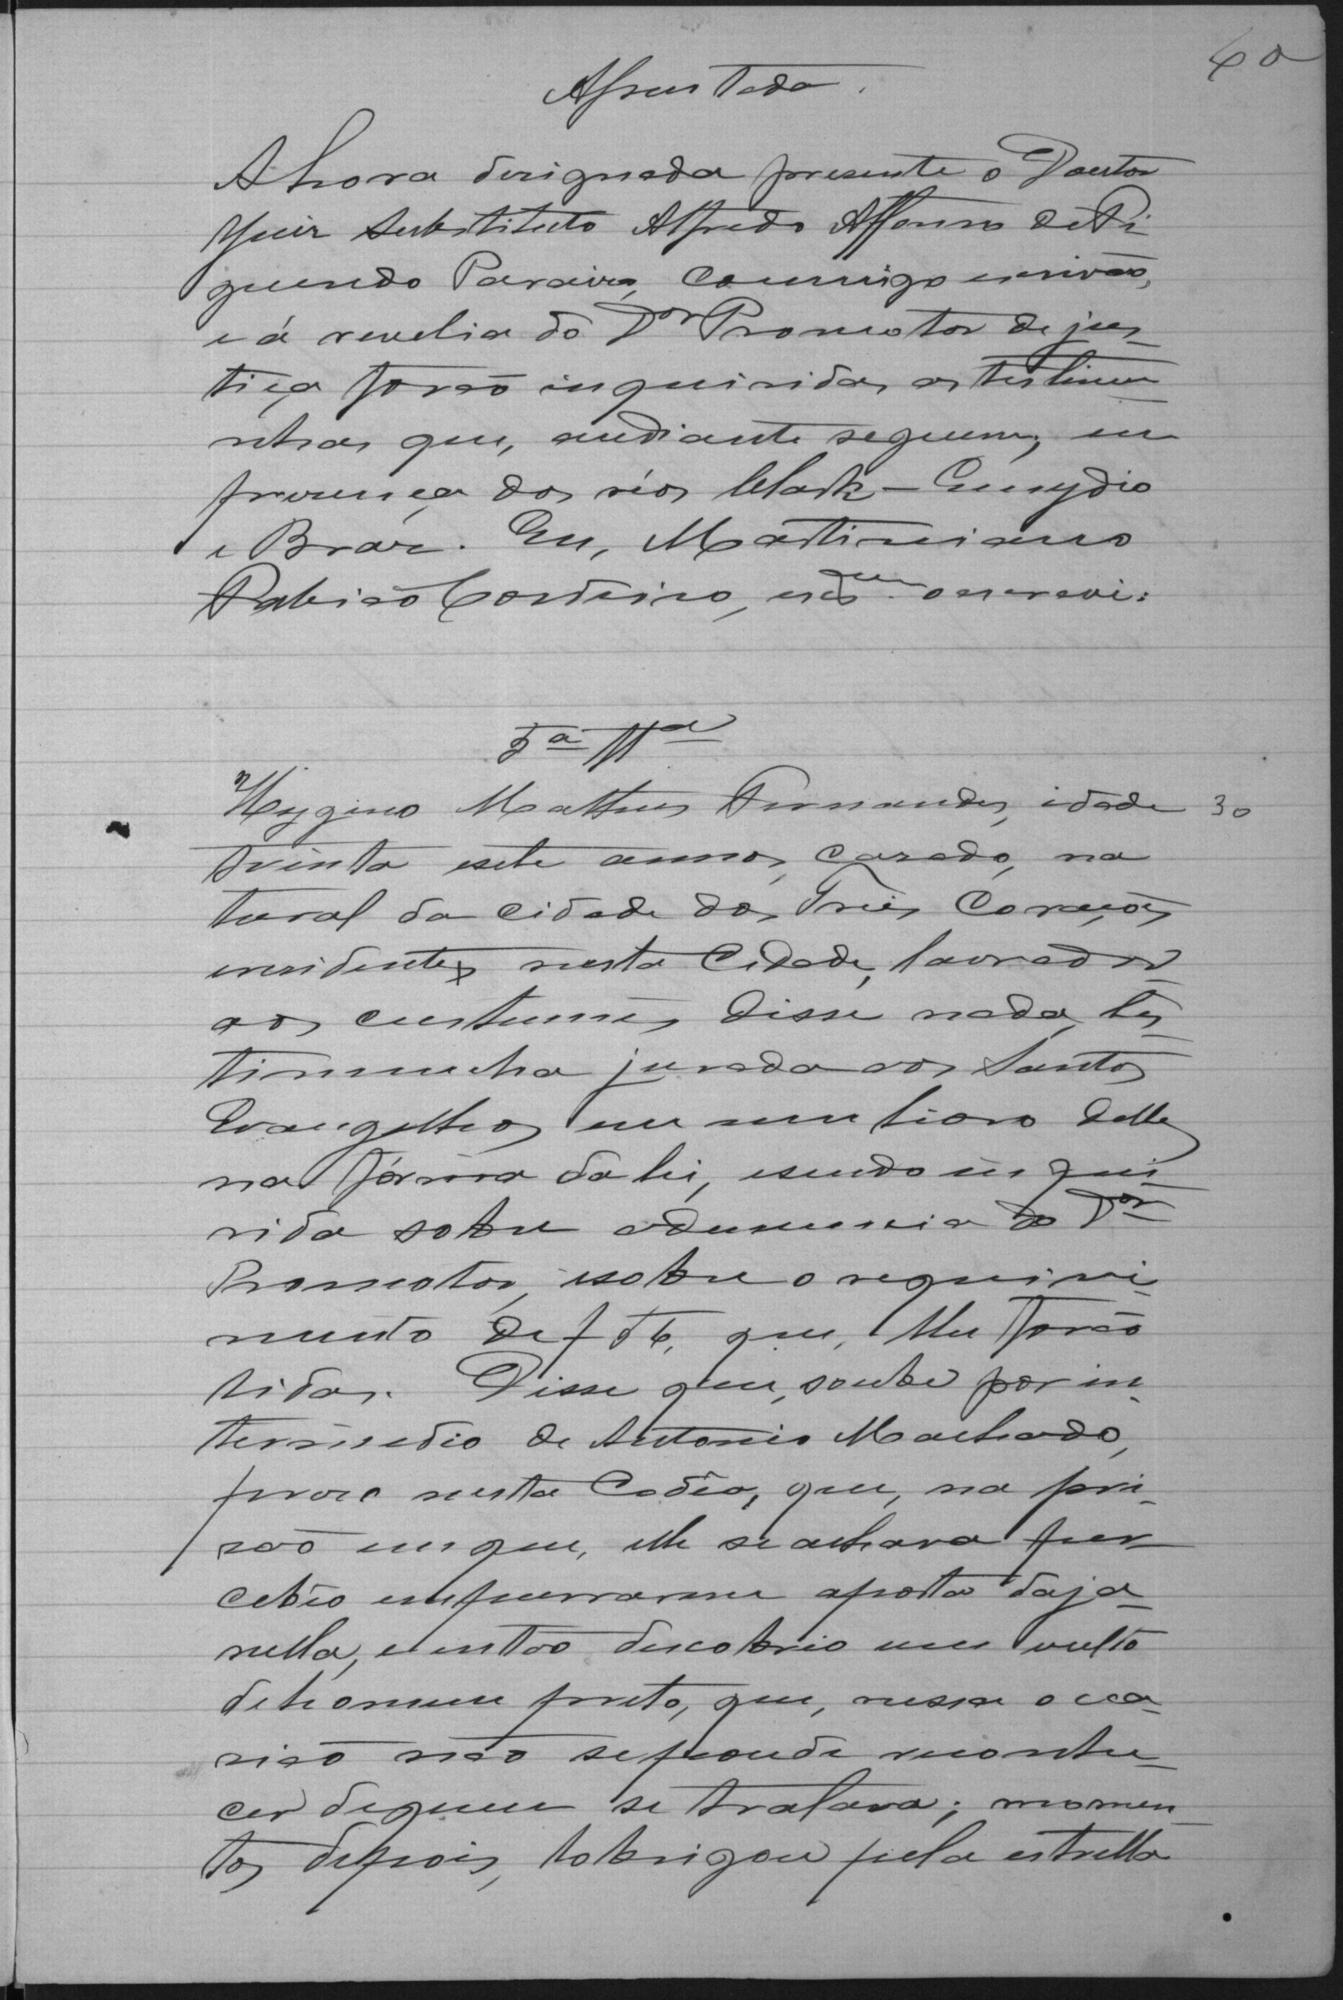 60
Assentada.
A hora designada presente o Doutor
Juiz substituto Alfredo Affonso de Fi
gueredo Pereira, commigo escrivão,
e á revelia do Dor Promotor de jus-
tiça forão inquiridas as testimu-
nhas que, andiante seguem; em
presença dos réos Clark – Emygdio
e Braz. Eu, Martiniano
Fabião Cordeiro, escrivão que o escrevi.
5a Ta
Hygino Matheus Fernandes, idade 30
trinta esete annos, casado, na
tural da cidade dos Tres Corações
eresidente nesta Cidade, lavrador
aos custumes disse nada, tes-
timunha jurada aos Santos
Evangelhos em um livro delles
na fórma da lei, esendo inqui
rida sobre adenuncia do Dor
Promotor, esobre o requiri-
mento de f 56, que, lhe forão
lidas. Disse que, soube por in-
termedio de Antonio Machado,
prezo nesta Cadêa, que, na pri-
são emque, elle se achava per
cebêo empurrarem aporta daja-
nella, eentão descobrio um vulto
dehomem preto, que, nessa occa-
sião não sepoude reconhe-
cer dequem se tratava; momen
tos depois, lobrigou pela estrella